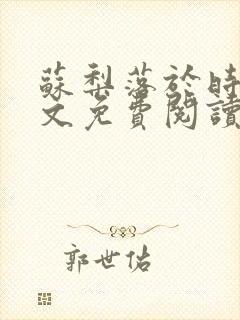 蘇梨落於時
文免費閱讀
郭世佑